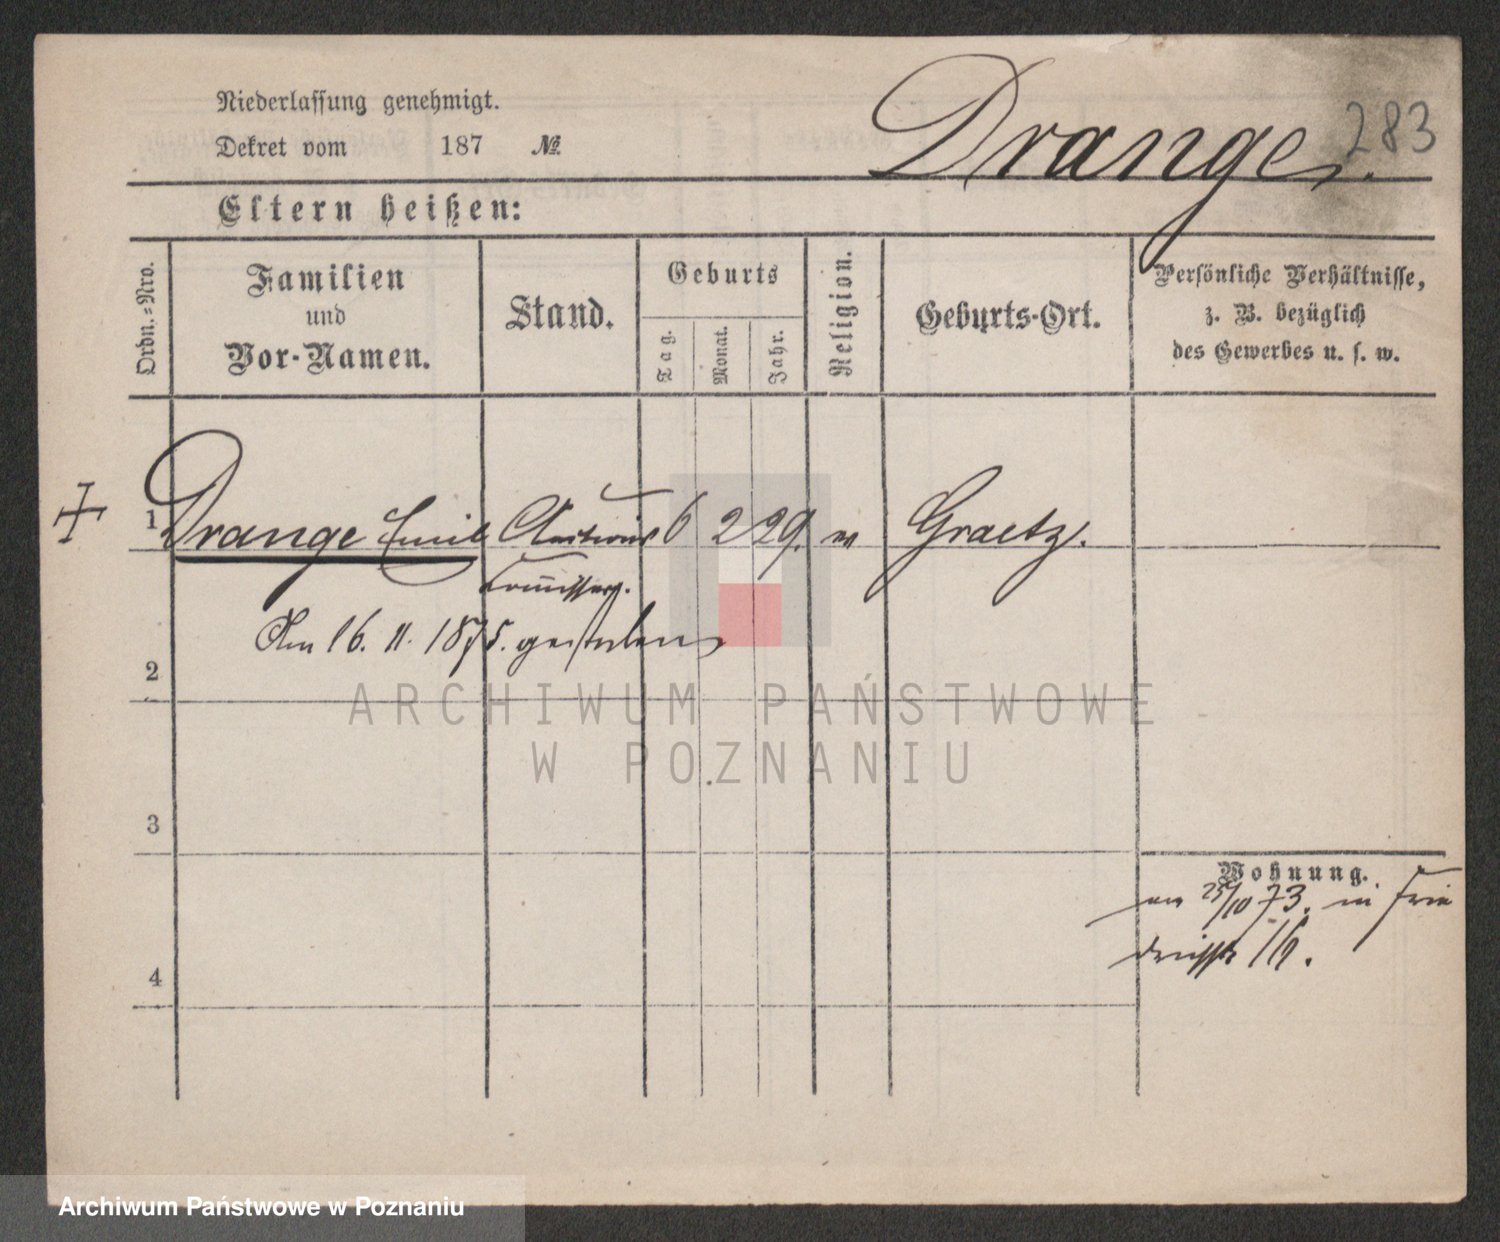 Niederlassung genehmigt.
Dekret vom 187 №
Drange.
283
Eltern heißen:
Ordn.-Nro.
Familien
und
Vor-Namen.
Stand.
Geburts
Tag.
Monat.
Jahr.
Religion.
Geburts-Ort.
Persönliche Verhältnisse,
z. B. bezüglich
des Gewerbes u. s. w.
1 Drange Emil Auctions 6 2 29. Graetz.
Commissar.
Am 16. 11. 1875. gestorben
2
3
4
Wohnung.
25/10 73.
16.
ARCHIWUM PAŃSTWOWE
W POZNANIU
Archiwum Państwowe w Poznaniu